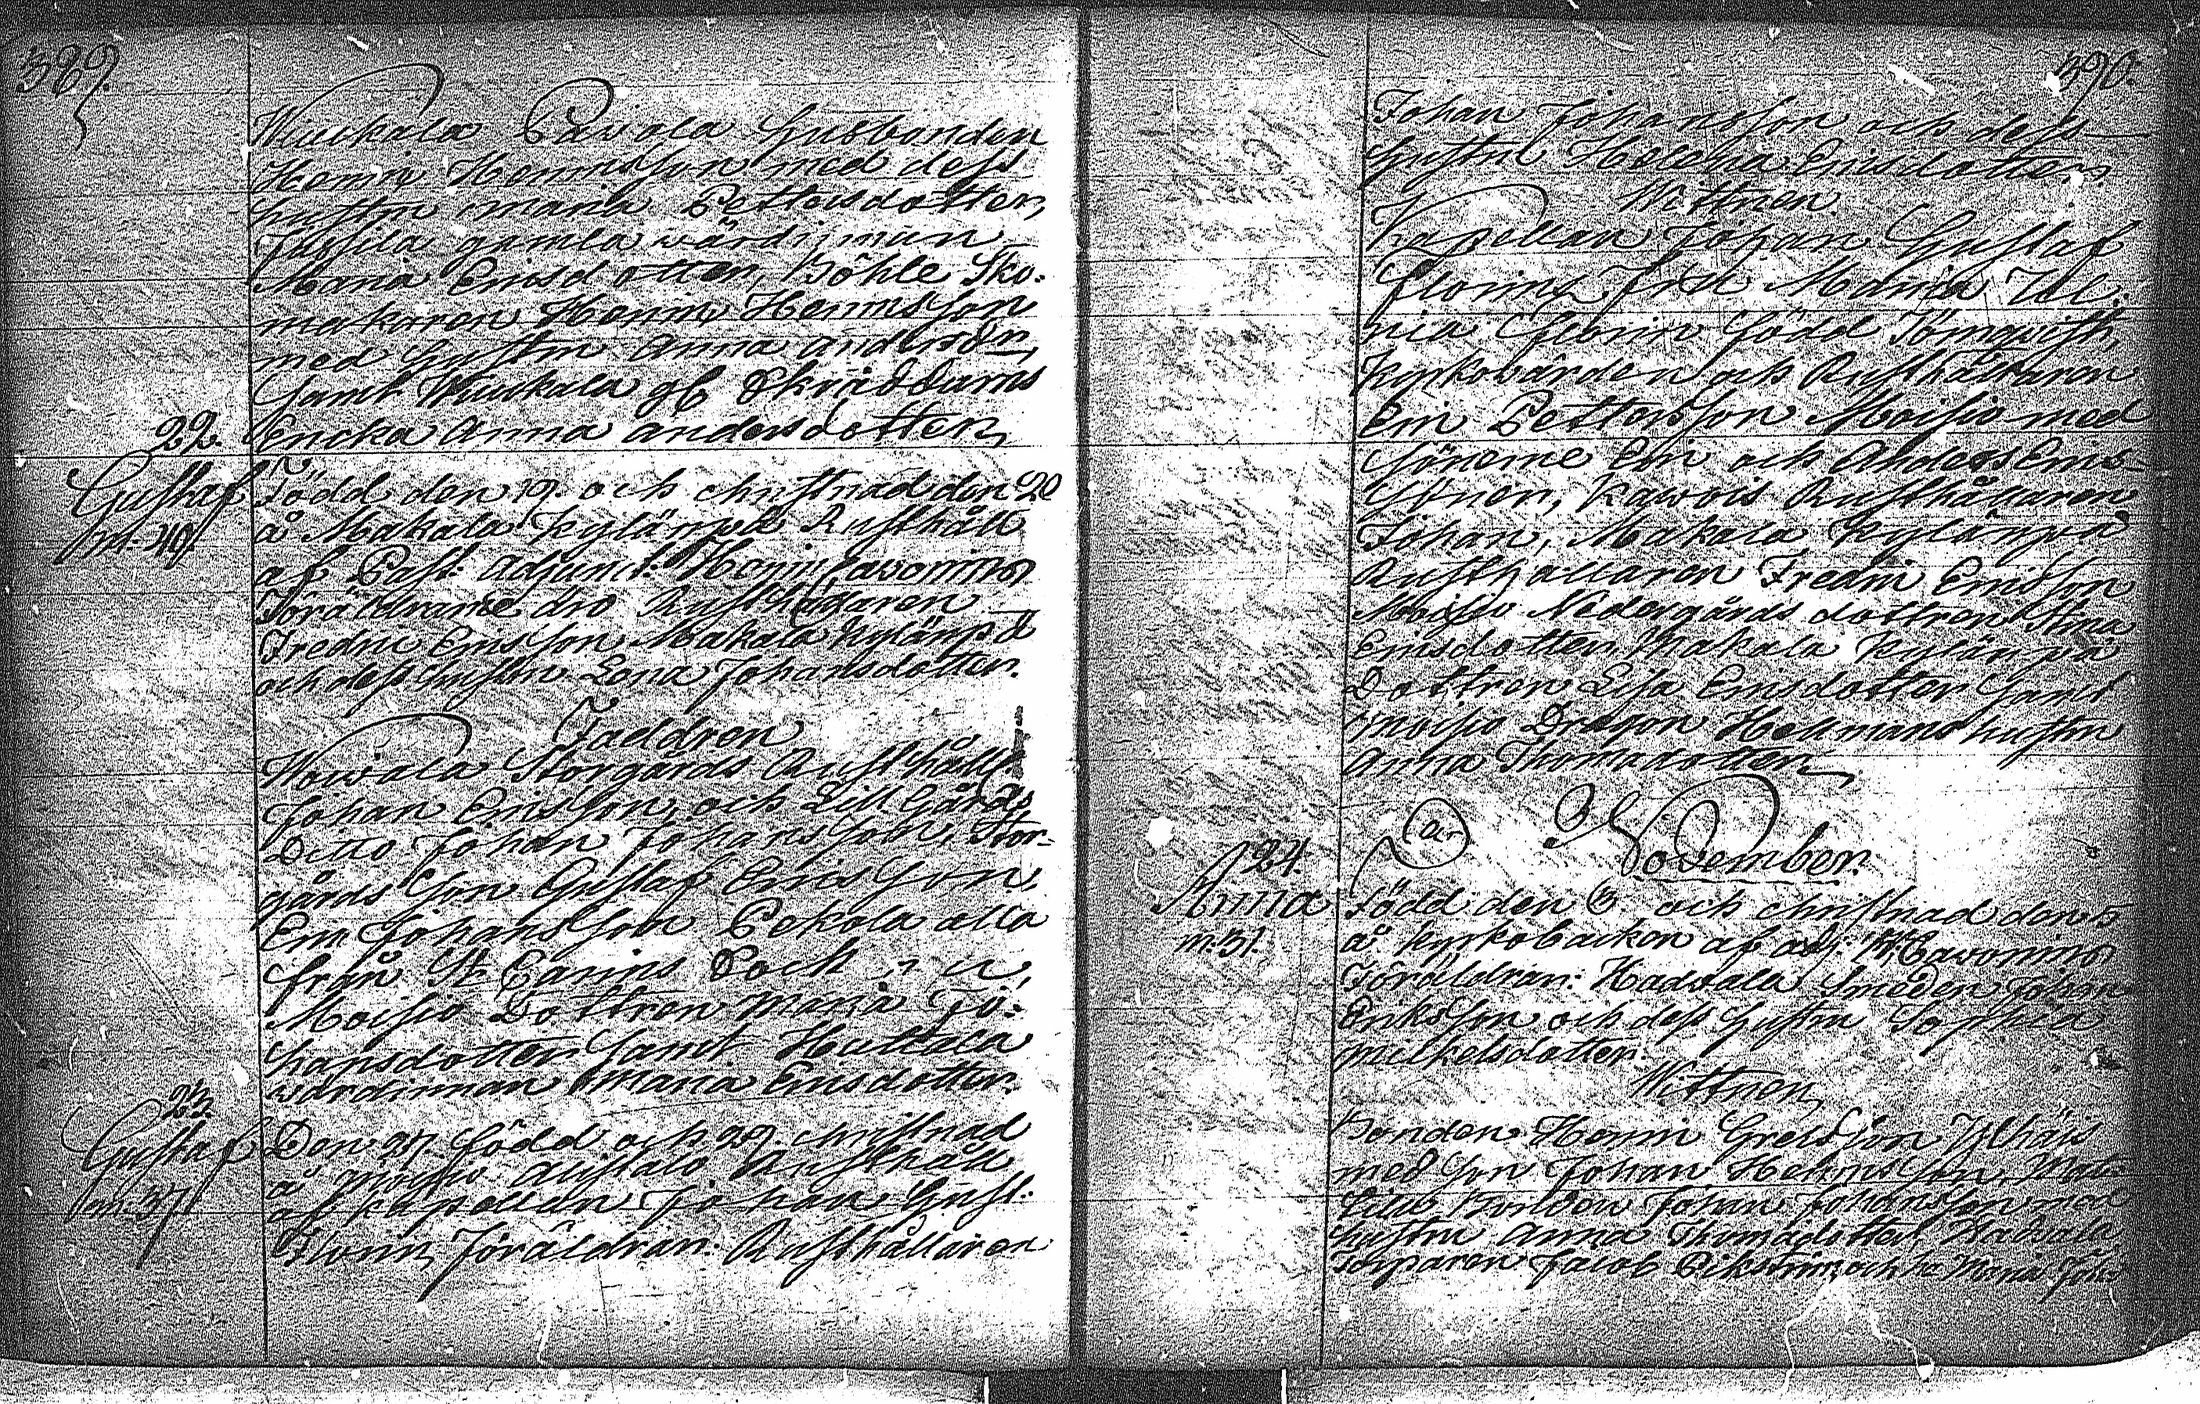 389.
Wuckala Pawola Husbonden
Henric Henricsson med dess
hustru Maria Pettersdotter,
Jussila gamla wärdinnan
Maria Ericsdotter, Böhle Sko-
makaren Henric Henricsson
med hustru Anna Andersdr,
samt Wuckala gl Skräddares
Encka Anna Andersdotter,
22.
Gustaf
m. 40
Född den 19. och christnad den 20
å Makala Kylänpä Rusthåll
af Past. Adjunct. Henric Cavonius
Föräldrarne äro Rusthållaren
Fredric Ericsson Makala Kylänpä
och dess hustru Lena Johansdotter.
Faddren
Storgårds Rusthåll:
Johan Ericsson, och Lill Gårds
Ditto Johan Johansson, Stor-
gårds Son Gustaf Ericsson,
Eric Johansson Pekola alla
från St Carins Sockn,
Moisio Dottren Maria Jo-
hansdotter samt Huttala
wärdinnan Maria Ericsdotter.
23.
Gustaf
m. 37
Den 27. född och 29. christnad
å Moisio Rusthåll
af Kapellan Johan Gust:
Florin, Föräldran: Rusthållaren
390.
Johan Johansson och dess
hustru Helena Ericsdotter.
Wittnen
Kapellan Johan Gustaf
Florin, Fru Maria Ul-
rica Florin född Törnqvist,
Kyrkovärden och Rusthållaren
Eric Pettersson Moisio med
Sönerne Eric och Anders Erics-
Söner, Rusthållaren
Johan, Makala Kylänpä
Rusthållaren Fredric Ericsson
Moisio Nedergårds dottren Stina
Ericsdotter, Makala Kylänpä
Dottren Lisa Ericsdotter samt
Moisio Dragon Hekmans hustru
Anna Thomasdotter
November.
24.
Anna
m. 31.
Född den 3 och christnad den 5
å Kyrkobacken af adj: H: Cavonius
Föräldran: Hadvala Smeden Johan
Eriksson och dess hustru Sophia
Mickelsdotter.
Wittnen,
Bonden Henric Grelsson Ylhäis
med Son Johan Henricsson,
Bonden Johan Johansson med
hustru Anna Thomasdotter, Hadvala
Torparen Jacob och h: Maria Joh: